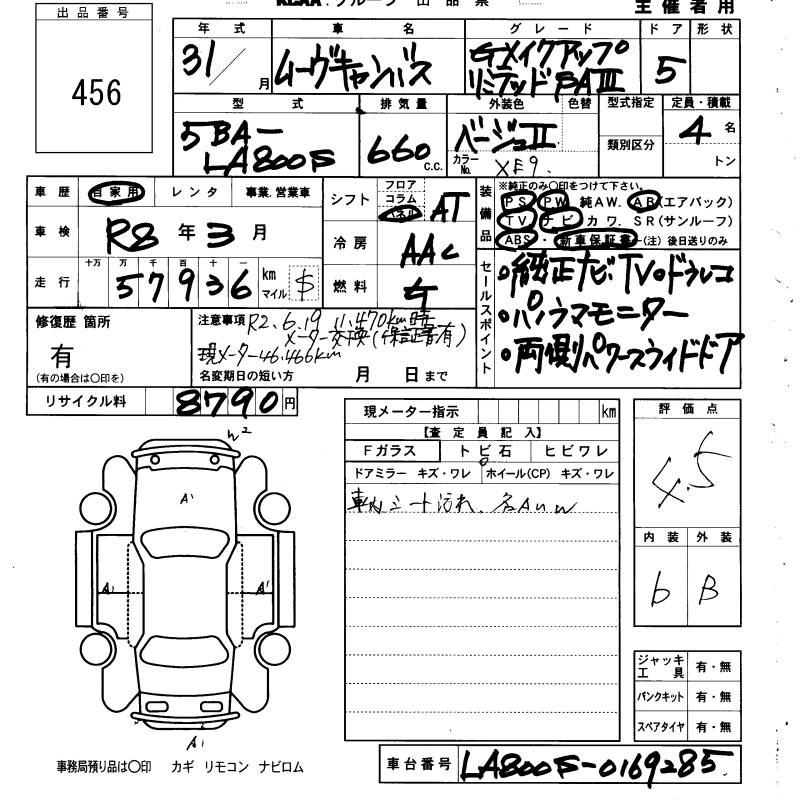 KCAA.グループ 出品票
主催者用
出品番号
456
年式 車名 グレード ドア 形状
31/ 月 ムーヴキャンバス Gメイクアップリミテッド SAIII 5
型式 排気量 外装色 色替 型式指定 定員・積載
5BA-LA800S 660 C.C. ベージュII カラーNo. XE9. 類別区分 4 名 トン
車歴 自家用 レンタ 事業.営業車
車検 R8 年 3 月
走行 十万 万 千 百 十 一 57936 km マイル $
シフト フロア コラム パネル AT
冷房 AAC
燃料 ガ
装備品 ※純正のみ○印をつけて下さい。
PS PW 純AW. AB(エアバック)
TV ナビ カワ. SR(サンルーフ)
ABS・新車保証書-(注)後日送りのみ
セールスポイント
•純正ナビ・TV•ドラレコ
•パノラマモニター
•両側パワースライドドア
修復歴 箇所
有
(有の場合は○印を)
注意事項 R2.6.19 11,470km時
メーター交換(保証書有)
現メーター46,466km
名変期日の短い方 月 日まで
リサイクル料 8790 円
現メーター指示 km
【査定員記入】
Fガラス トビ石 ヒビワレ
ドアミラー キズ・ワレ ホイール(CP) キズ・ワレ
車内シート汚れ、各AUW
評価点
4.5
内装 外装
b B
ジャッキ工具 有・無
パンクキット 有・無
スペアタイヤ 有・無
W2
A1
A1 A1
A1
事務局預り品は○印 カギ リモコン ナビロム
車台番号 LA800S-0169285